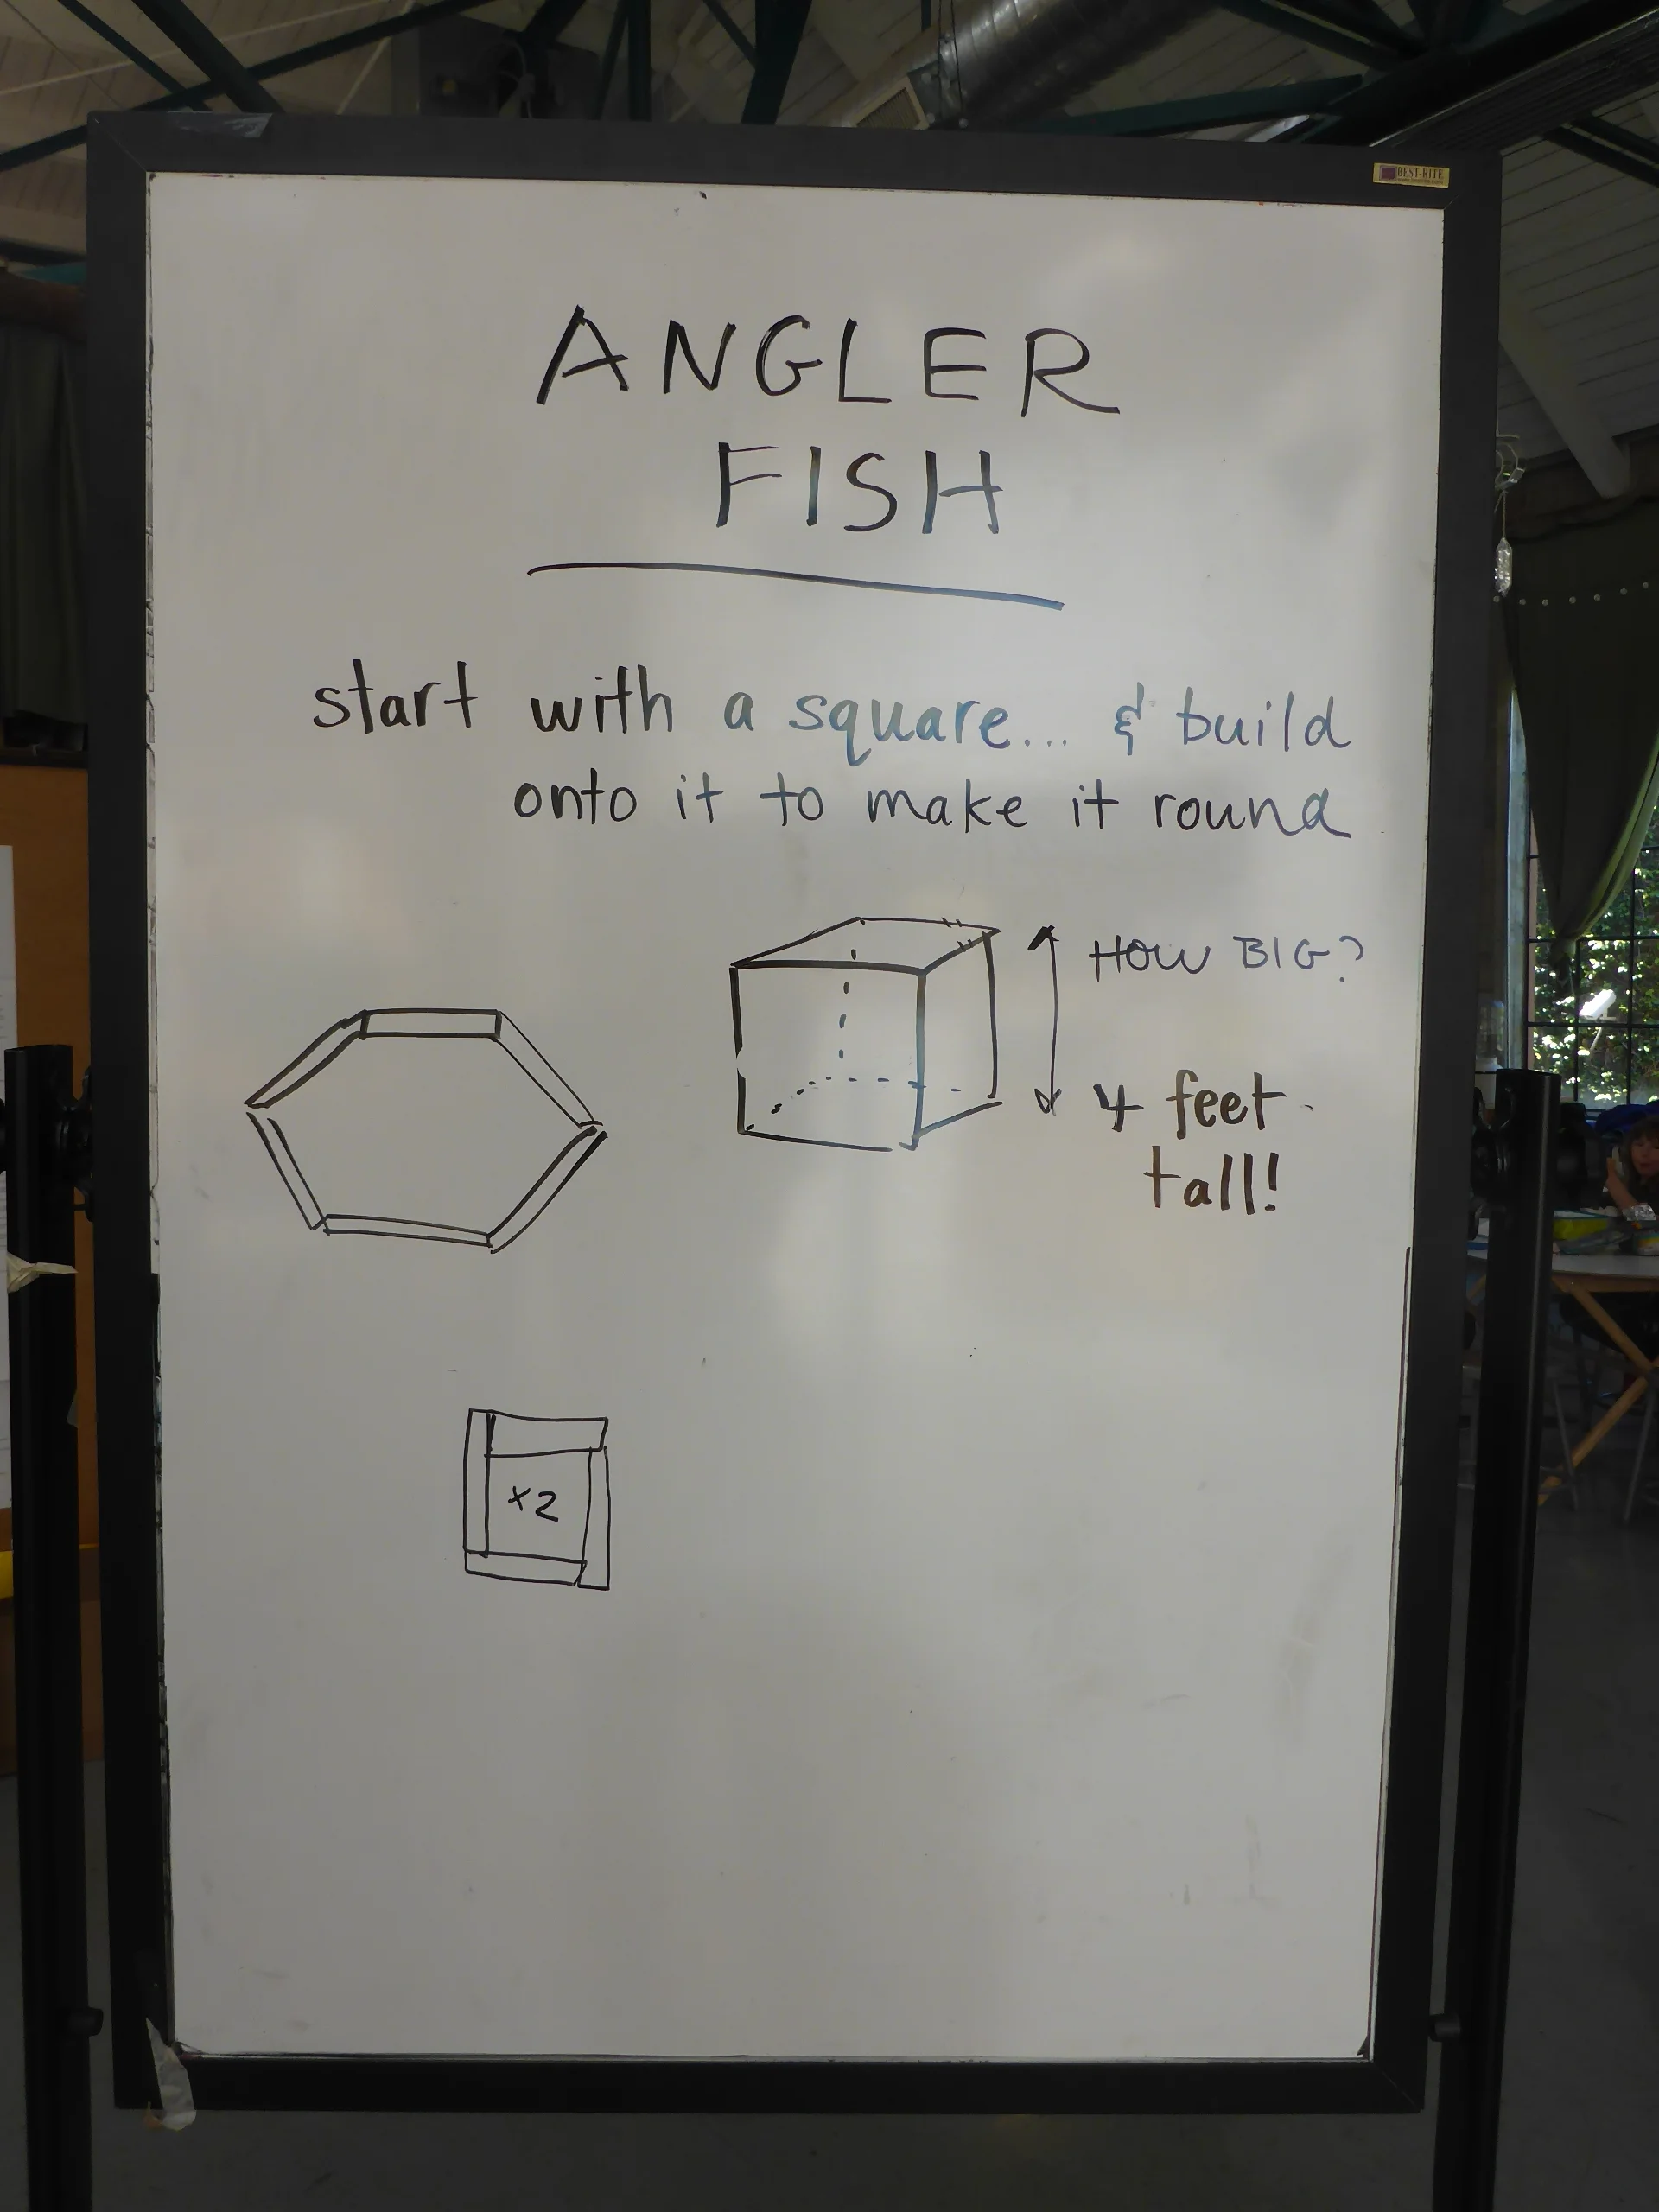 BEST-RITE
ANGLER
FISH
start with a square... & build
onto it to make it round
HOW BIG?
4 feet
tall!
x2